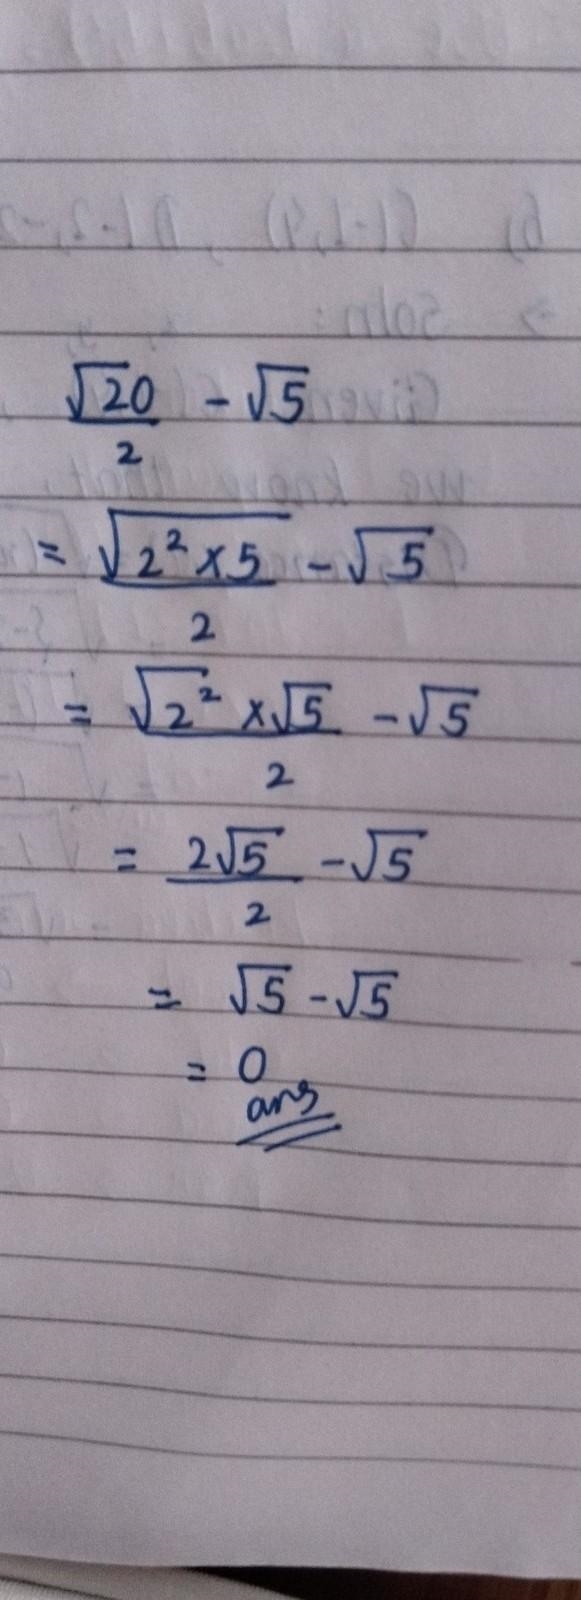 √20/2 - √5
= √(2² × 5)/2 - √5
= √2² × √5/2 - √5
= 2√5/2 - √5
= √5 - √5
= 0
ans